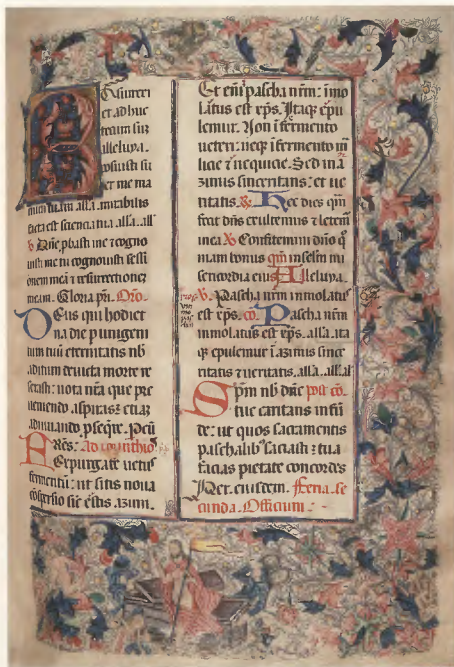 Resurrexi
et ad huc
tecum suz
alleluya.
posuisti su
per me ma
num tuam alla. mirabilis
facta est sciencia tua alla. all
℣ Dn̄e p̱basti me ⁊ cogno
uisti me tu cognouisti sessi
onem meā ⁊ resurrectionez
meam. Gloria pr̄i. Or̄o.
Deus qui hodier
na die p̱ unigeni
tum tuū eternitatis nb̄
aditum deuicta morte re
serasti: uota nr̄a que pre
ueniendo aspiras: etiaz
adiuuando p̱seqr̄e. Ad corynthios
Expurgate uetus
fermentū: ut sitis noua
cōspersio sic̄ estis azimi.
Et em̄ pascha nr̄m: īmo
latus est xp̄s. Itaq̱ epu
lemur. Non ī fermento
ueteri: neq̱ ī fermento m̄
licie ⁊ nequicie. Sed in a
zimis sinceritatis: et ue
ritatis. ℟. Hec dies qm̄
fecit dn̄s exultemus ⁊ letem̄
in ea ℣ Confitemini dn̄o q̄
niam bonus qm̄ in sclm̄ mi
sericordia eius Alleluya.
℣. Pascha nr̄m immolatus
est xp̄s. cō. Pascha nr̄m
immolatus est xp̄s. alla. ita
q̱ epulemur ī azimis since
ritatis ⁊ ueritatis. alla. alla. al
Spm̄ nb̄ dn̄e post cō.
tue caritatis infū
de: ut quos sacramentis
paschalib᷒ saciasti ⁊ tua
facias pietate concordes
Per. eiusdem. Feria se
cunda. Officium: